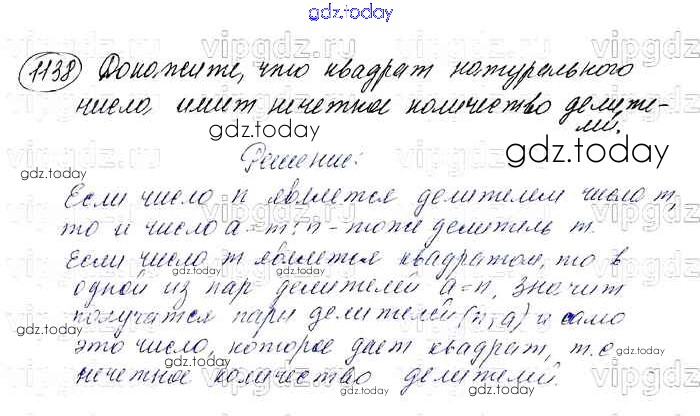 gdz.today
1138 Докажите, что квадрат натурального
числа имеет нечетное количество делите-
лей.
gdz.today
Решение:
Если число n является делителем числа m,
то и число a = m : n - тоже делитель m.
Если число m является квадратом, то в
одной из пар делителей a = n, значит
получатся пары делителей (n и a) и само
это число, которое дает квадрат, т.е
нечетное количество делителей.
gdz.today